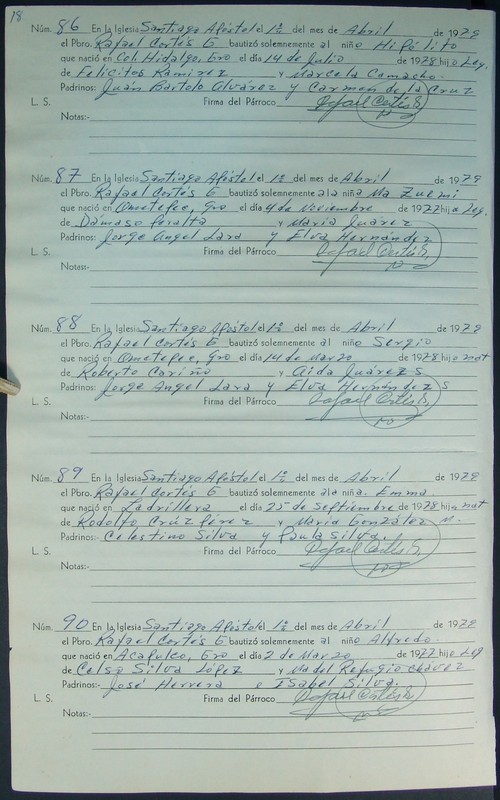 18
Núm. 86 En la Iglesia Santiago Apóstol el 1º del mes de Abril de 1979
el Pbro. Rafael Cortés G bautizó solemnemente al niño Hipólito
que nació en Col. Hidalgo, Gro el día 14 de Julio de 1978 hijo Leg.
de Felicitos Ramírez y Marcela Camacho.
Padrinos: Juan Bartolo Alvarez y Carmen de la Cruz
L. S. Firma del Párroco Rafael Cortés G.
Notas:-
Núm. 87 En la Iglesia Santiago Apóstol el 1º del mes de Abril de 1979
el Pbro. Rafael Cortés G bautizó solemnemente a la niña Ma Zuemi
que nació en Ometepec, Gro el día 4 de Noviembre de 1977 hija Leg.
de Dámaso Peralta y María Juárez
Padrinos: Jorge Angel Lara y Elva Hernández
L. S. Firma del Párroco Rafael Cortés G.
Notas:-
Núm. 88 En la Iglesia Santiago Apóstol el 1º del mes de Abril de 1979
el Pbro. Rafael Cortés G bautizó solemnemente al niño Sergio
que nació en Ometepec, Gro el día 14 de Marzo de 1978 hijo nat
de Roberto Cariño y Aida Juárez S
Padrinos: Jorge Angel Lara y Elva Hernández S
L. S. Firma del Párroco Rafael Cortés G.
Notas:-
Núm. 89 En la Iglesia Santiago Apóstol el 1º del mes de Abril de 1979
el Pbro. Rafael Cortés G bautizó solemnemente a la niña. Emma
que nació en Ladrillera el día 25 de Septiembre de 1978 hija nat
de Rodolfo Crúz Pérez y María González M.
Padrinos:- Celestino Silva y Paula Silva.
L. S. Firma del Párroco Rafael Cortés G.
Notas:-
Núm. 90 En la Iglesia Santiago Apóstol el 1º del mes de Abril de 1979
el Pbro. Rafael Cortés G bautizó solemnemente al niño Alfredo
que nació en Acapulco, Gro el día 2 de Marzo de 1977 hijo Leg
de Celso Silva López y Ma del Refugio Chávez
Padrinos:- José Herrera e Isabel Silva.
L. S. Firma del Párroco Rafael Cortés G.
Notas:-